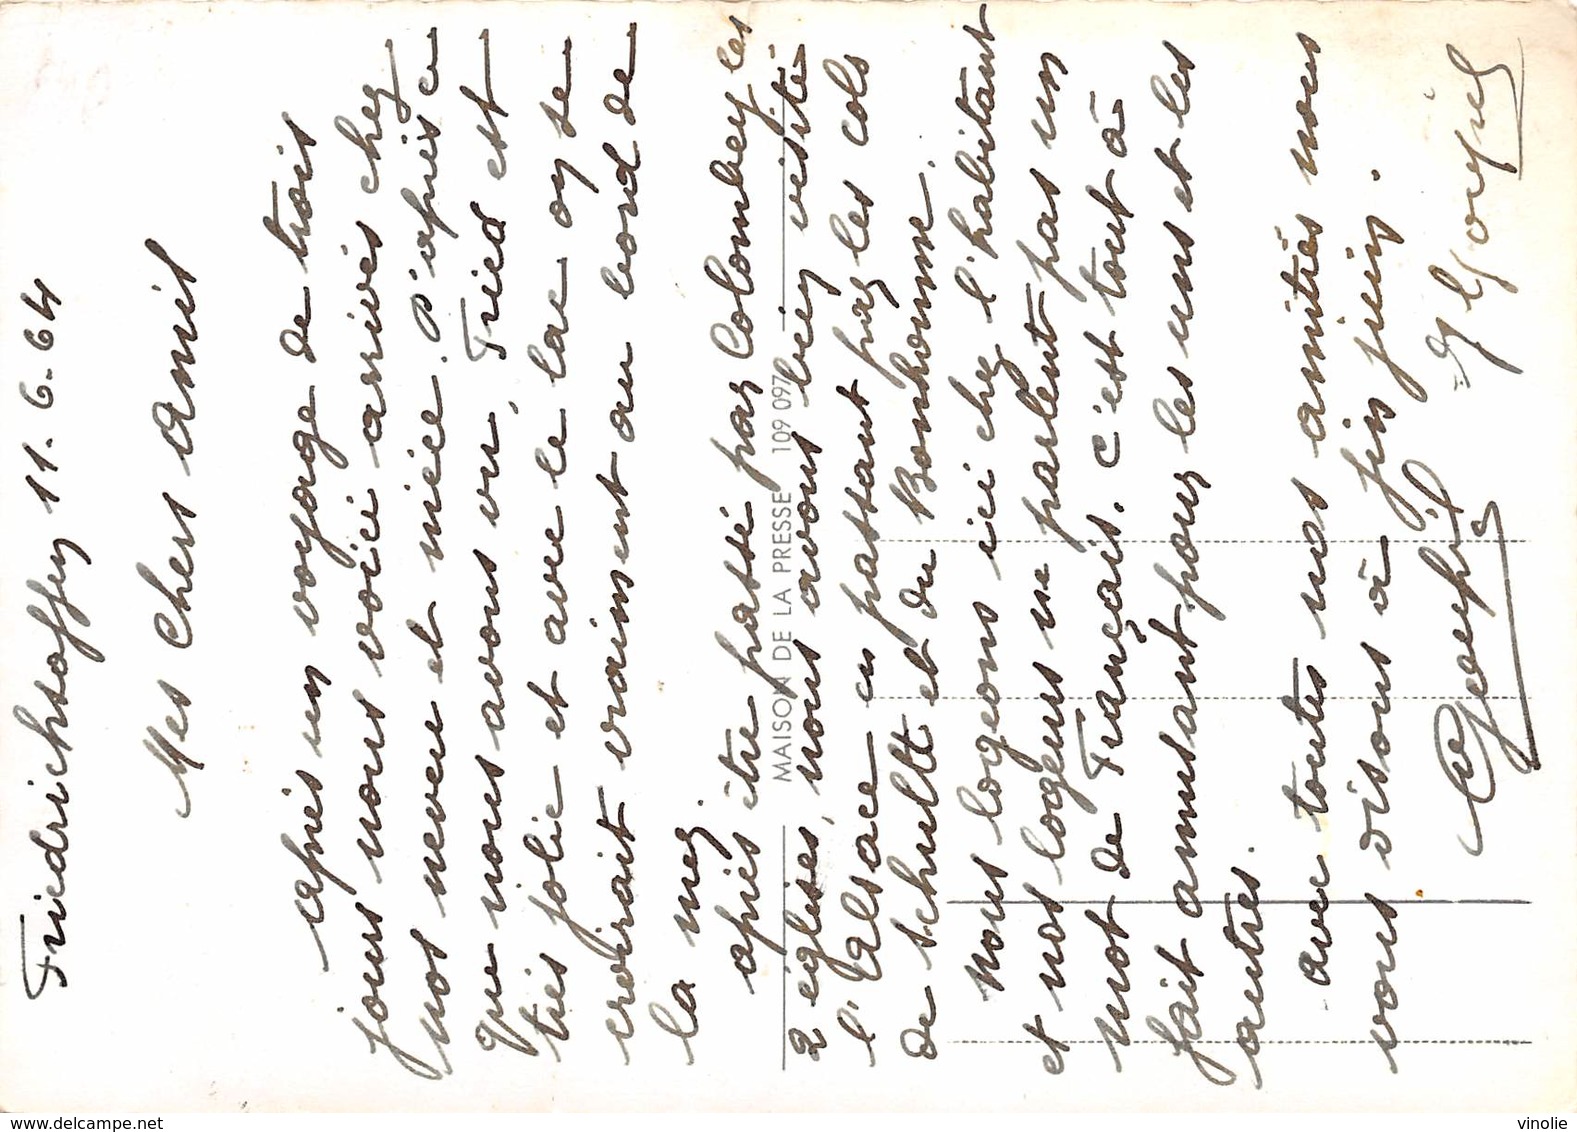 Friedrichshaffen 11.6.64
Mes chers amis
après un voyage de trois
jours nous voici arrivés chez
nos neveu et nièce. D'après ce
que nous avons vu, Fried est
très jolie et avec le lac on se
croirait vraiment au bord de
la mer.
après être passé par Colombey les
2 églises, nous avons bien visité
l'Alsace en passant par les cols
de schultt et du Bonhomme.
Nous logeons ici chez l'habitant
et nos logeurs ne parlent pas un
mot de Français. c'est tout à
fait amusant pour les uns et les
autres.
avec toutes nos amitiés nous
vous disons à fin juin.
MAISON DE LA PRESSE 109 097
vinolie